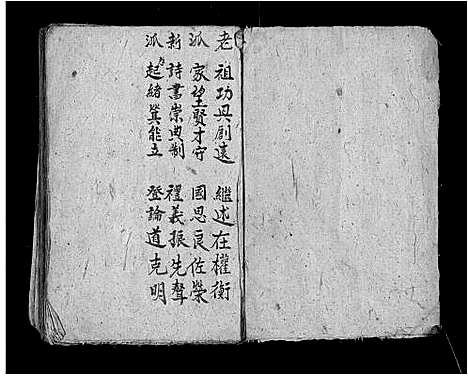 老 祖功與創遠 繼述在權衡
派 家望賢才守 國思良佐榮
新 詩書崇典制 禮義振先聲
派 乃起緒箕能立 登論道克明